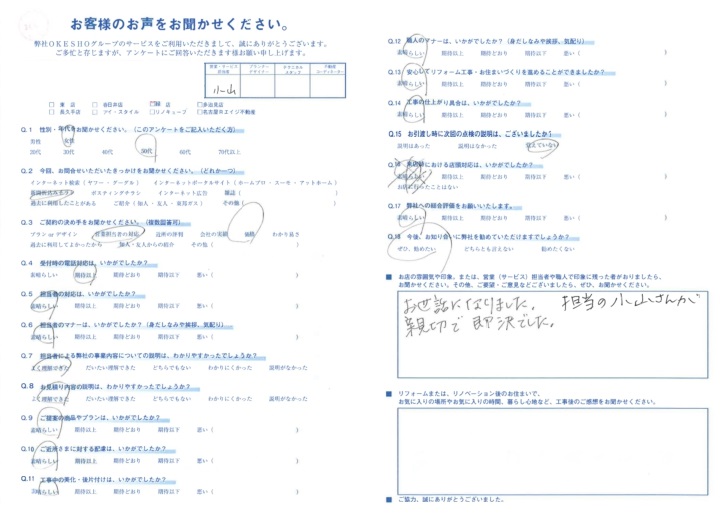 お客様のお声をお聞かせください。
弊社OKESHOグループのサービスをご利用いただきまして、誠にありがとうございます。
ご多忙と存じますが、アンケートにご回答いただきます様お願い申し上げます。
営業・サービス 担当者 プランナー デザイナー テクニカル スタッフ 不動産 コーディネーター
小山
東店 春日井店 店 多治見店
長久手店 ツイ・スタイル リノキューブ 名古屋ロエイジ不動産
Q.1 性別・年代をお聞かせください。(このアンケートをご記入いただく方)
男性 女性
20代 30代 40代 50代 60代 70代以上
Q.2 今回、お問合せいただいたきっかけをお聞かせください。(どれか一つ)
インターネット検索(ヤフー・グーグル) インターネットポータルサイト(ホームプロ・スーモ・アットホーム)
新聞折込みチラシ ポスティングチラシ インターネット広告 雑誌( )
過去に利用したことがある ご紹介(個人・友人・東邦ガス) その他( )
Q.3 ご契約の決め手をお聞かせください。(複数回答可)
プラン or デザイン 営業担当者の対応 近所の評判 会社の実績 価格 わかり易さ
過去に利用してよかったから 個人・友人からの紹介 その他( )
Q.4 受付時の電話対応は、いかがでしたか?
素晴らしい 期待以上 期待どおり 期待以下 悪い( )
Q.5 担当者の対応は、いかがでしたか?
素晴らしい 期待以上 期待どおり 期待以下 悪い( )
Q.6 担当者のマナーは、いかがでしたか?(身だしなみや挨拶、気配り)
素晴らしい 期待以上 期待どおり 期待以下 悪い( )
Q.7 担当者による弊社の事業内容についての説明は、わかりやすかったでしょうか?
よく理解できた だいたい理解できた どちらでもない わかりにくかった 説明がなかった
Q.8 お見積り内容の説明は、わかりやすかったでしょうか?
よく理解できた だいたい理解できた どちらでもない わかりにくかった 説明がなかった
Q.9 ご提案の商品やプランは、いかがでしたか?
素晴らしい 期待以上 期待どおり 期待以下 悪い( )
Q.10 ご近所さまに対する配慮は、いかがでしたか?
素晴らしい 期待以上 期待どおり 期待以下 悪い( )
Q.11 工事中の美化・後片付けは、いかがでしたか?
素晴らしい 期待以上 期待どおり 期待以下 悪い( )
Q.12 職人のマナーは、いかがでしたか?(身だしなみや挨拶、気配り)
素晴らしい 期待以上 期待どおり 期待以下 悪い( )
Q.13 安心してリフォーム工事・お住まいづくりを進めることができましたか?
素晴らしい 期待以上 期待どおり 期待以下 悪い( )
Q.14 工事の仕上がり具合は、いかがでしたか?
素晴らしい 期待以上 期待どおり 期待以下 悪い( )
Q.15 お引渡し時に次回の点検の説明は、ございましたか?
説明はあった 説明はなかった 覚えていない
Q.16 来店時における店頭対応は、いかがでしたか?
期待以上 期待どおり 期待以下 悪い( )
お店に行ったことはない
Q.17 弊社への総合評価をお願いいたします。
素晴らしい 期待以上 期待どおり 期待以下 悪い( )
Q.18 今後、お知り合いに弊社を勧めていただけますでしょうか?
ぜひ、勧めたい どちらとも言えない 勧めたくない
■ お店の雰囲気や印象、または、営業(サービス)担当者や職人で印象に残った者がおりましたら、
お聞かせください。その他、ご要望・ご意見などございましたら、ぜひ、お聞かせください。
お世話になりました。 担当の小山さんが
親切で即決でした。
■ リフォームまたは、リノベーション後のお住まいで、
お気に入りの場所やお気に入りの時間、暮らし心地など、工事後のご感想をお聞かせください。
■ ご協力、誠にありがとうございました。